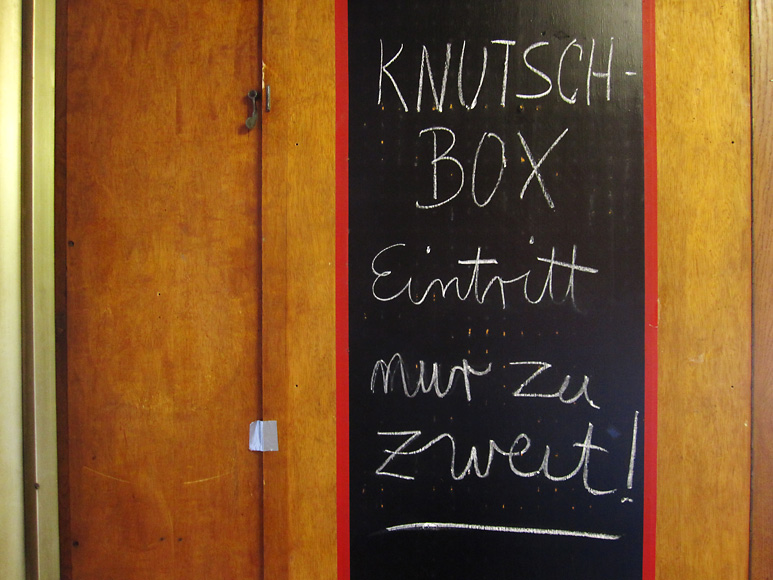 KNUTSCH-
BOX
Eintritt
nur zu
zweit!